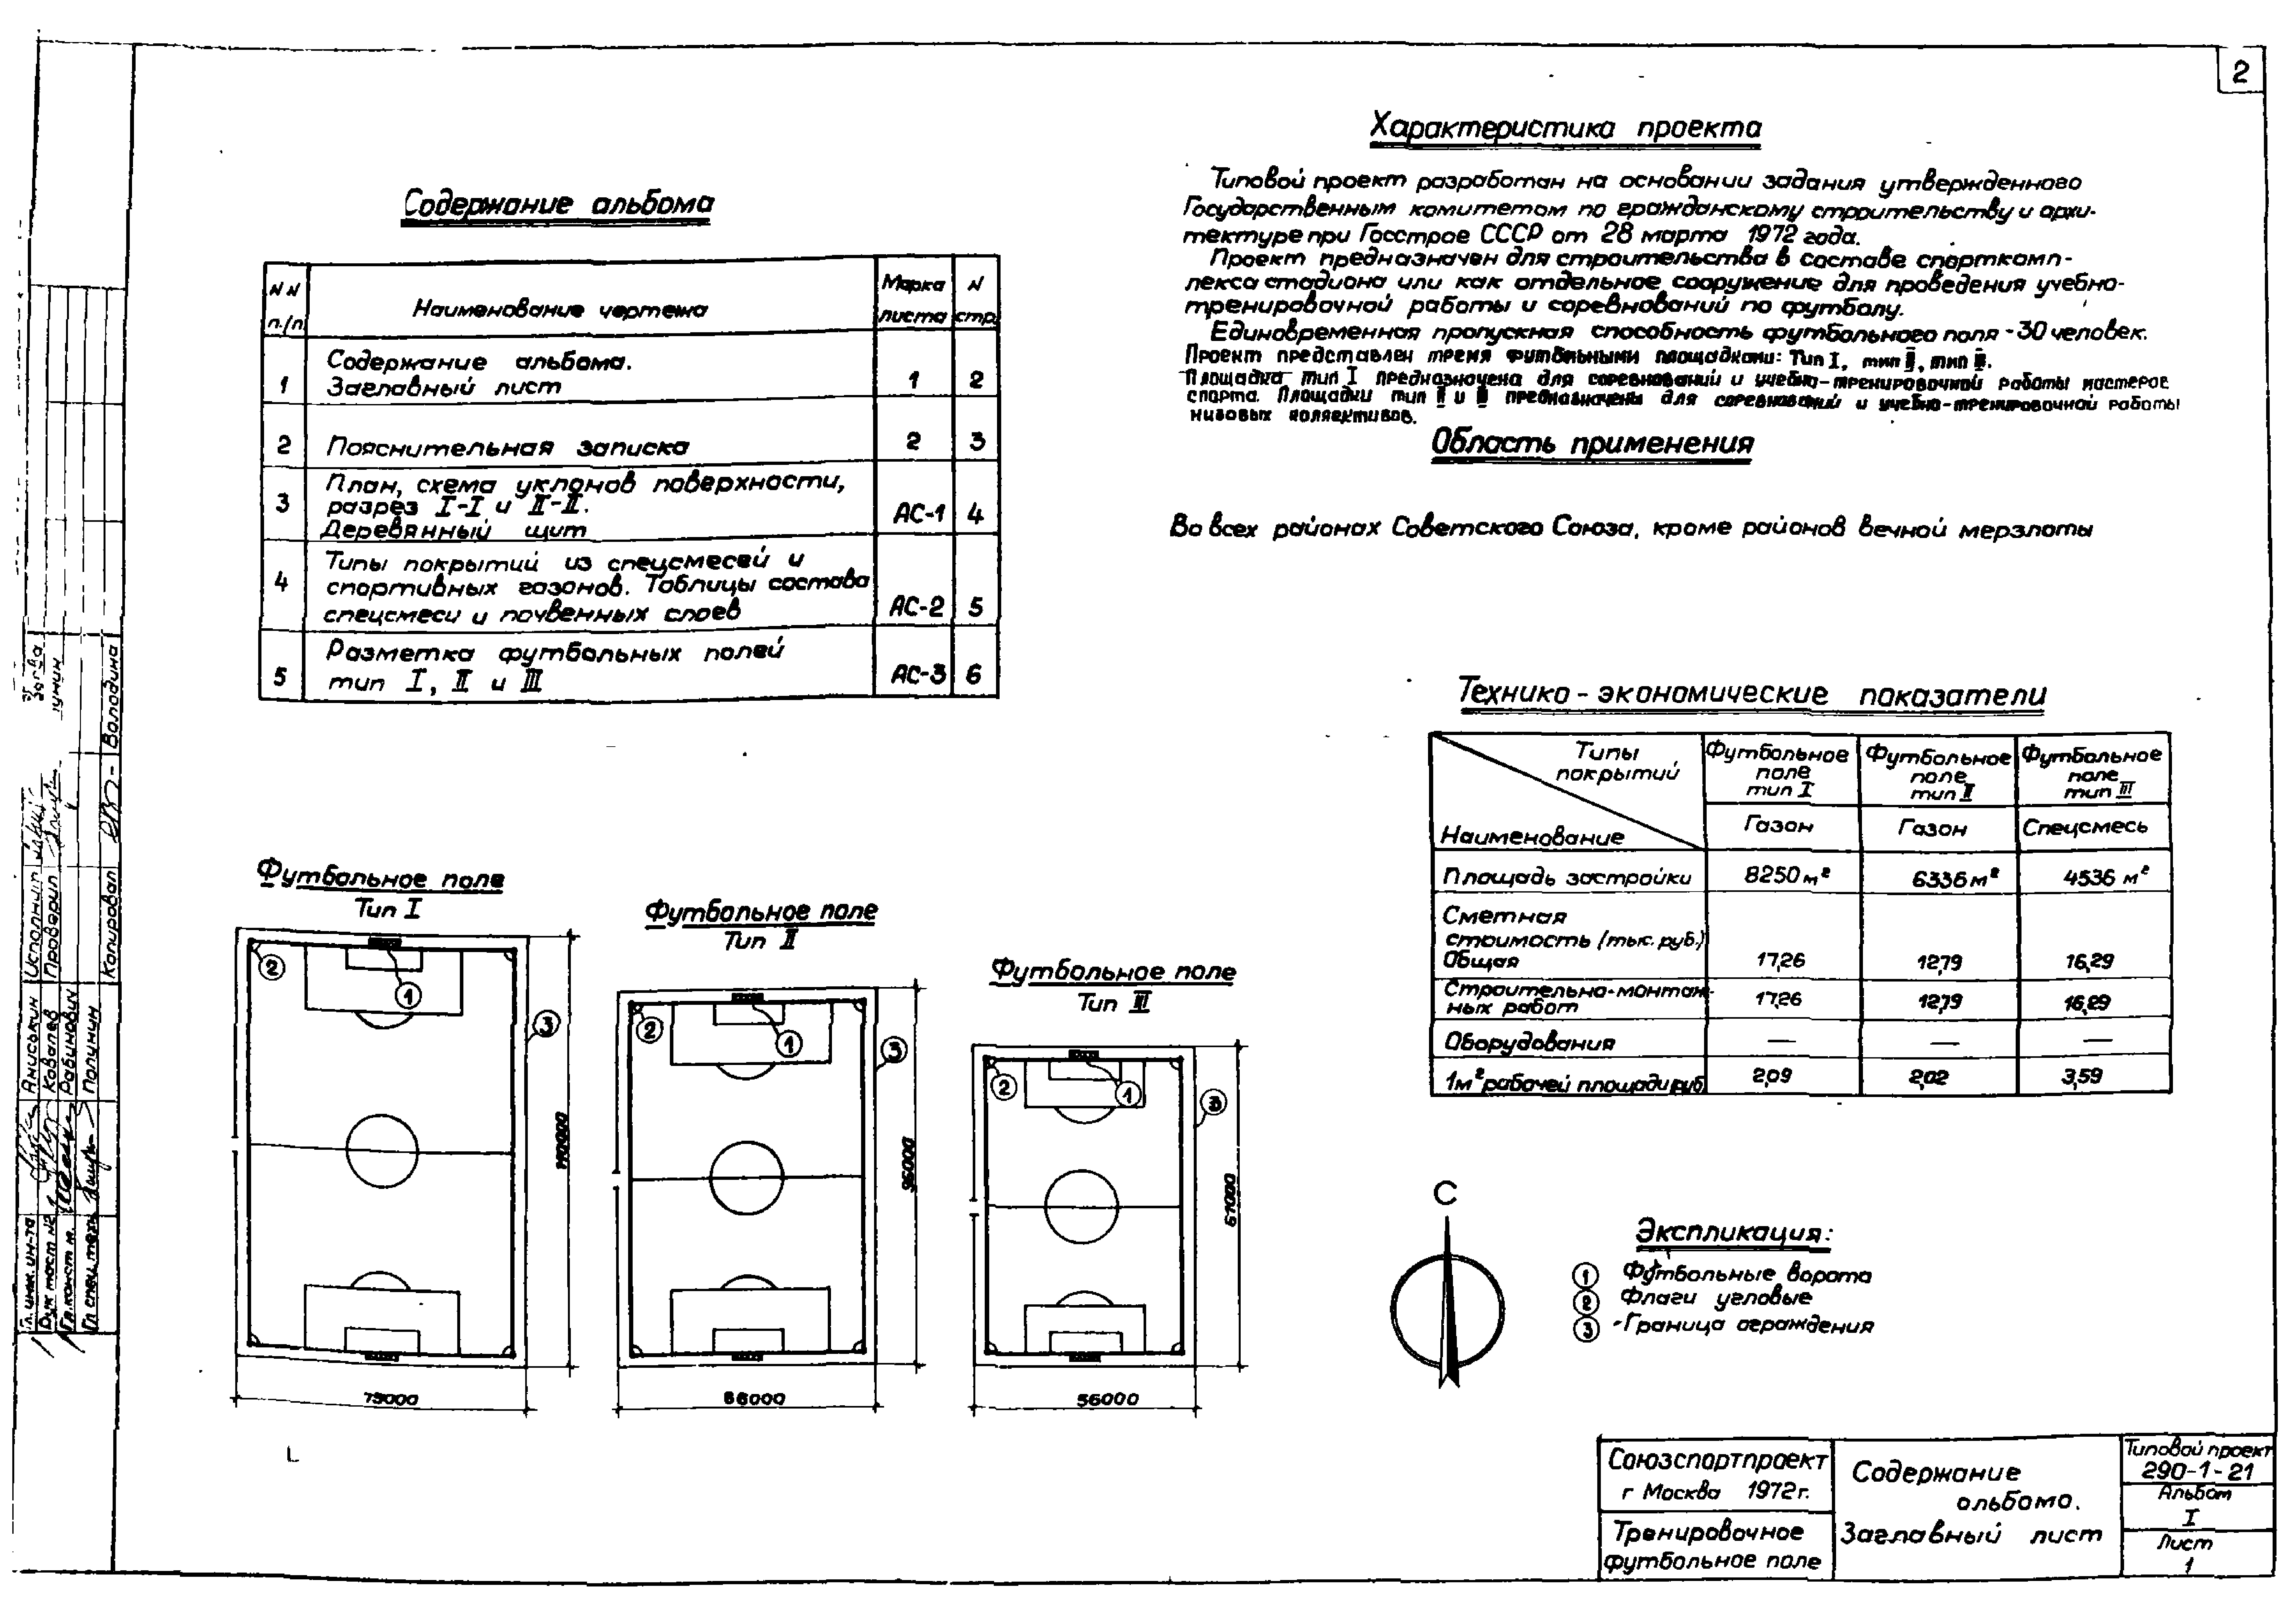 2
Содержание альбома
NN п./п.
Наименование чертежа
Марка листа
N стр.
1
Содержание альбома.
Заглавный лист
1
2
2
Пояснительная записка
2
3
3
План, схема уклонов поверхности,
разрез I-I и II-II.
Деревянный щит
АС-1
4
4
Типы покрытий из спецсмесей и
спортивных газонов. Таблицы состава
спецсмеси и почвенных слоев
АС-2
5
5
Разметка футбольных полей
тип I, II и III
АС-3
6
Характеристика проекта
Типовой проект разработан на основании задания утвержденного
Государственным комитетом по гражданскому строительству и архи-
тектуре при Госстрое СССР от 28 марта 1972 года.
Проект предназначен для строительства в составе спорткомп-
лекса стадиона или как отдельное сооружение для проведения учебно-
тренировочной работы и соревнований по футболу.
Единовременная пропускная способность футбольного поля - 30 человек.
Проект представлен тремя футбольными площадками: Тип I, тип II, тип III.
Площадка тип I предназначена для соревнований и учебно-тренировочной работы мастеров
спорта. Площадки тип II и III предназначены для соревнований и учебно-тренировочной работы
низовых коллективов.
Область применения
Во всех районах Советского Союза, кроме районов вечной мерзлоты
Технико-экономические показатели
Типы
покрытий
Наименование
Футбольное
поле
тип I
Футбольное
поле
тип II
Футбольное
поле
тип III
Газон
Газон
Спецсмесь
Площадь застройки
8250 м²
6336 м²
4536 м²
Сметная
стоимость (тыс. руб.)
Общая
17,26
12,79
16,29
Строительно-монтаж-
ных работ
17,26
12,79
16,29
Оборудования
—
—
—
1м² рабочей площади руб
2,09
2,02
3,59
Футбольное поле
Тип I
2
1
3
110000
75000
Футбольное поле
Тип II
2
1
3
96000
66000
Футбольное поле
Тип III
2
1
3
81000
56000
С
Экспликация:
1 Футбольные ворота
2 Флаги угловые
3 -Граница ограждения
Союзспортпроект
г Москва 1972г.
Тренировочное
футбольное поле
Содержание
альбома.
Заглавный лист
Типовой проект
290-1-21
Альбом
I
Лист
1
Гл. инж. ин-та
Аниськин
Исполнил
Рук маст №2
Ковалев
Проверил
Гл. конст м.
Рабинович
Гл спец техн
Полунин
Копировал
Володина